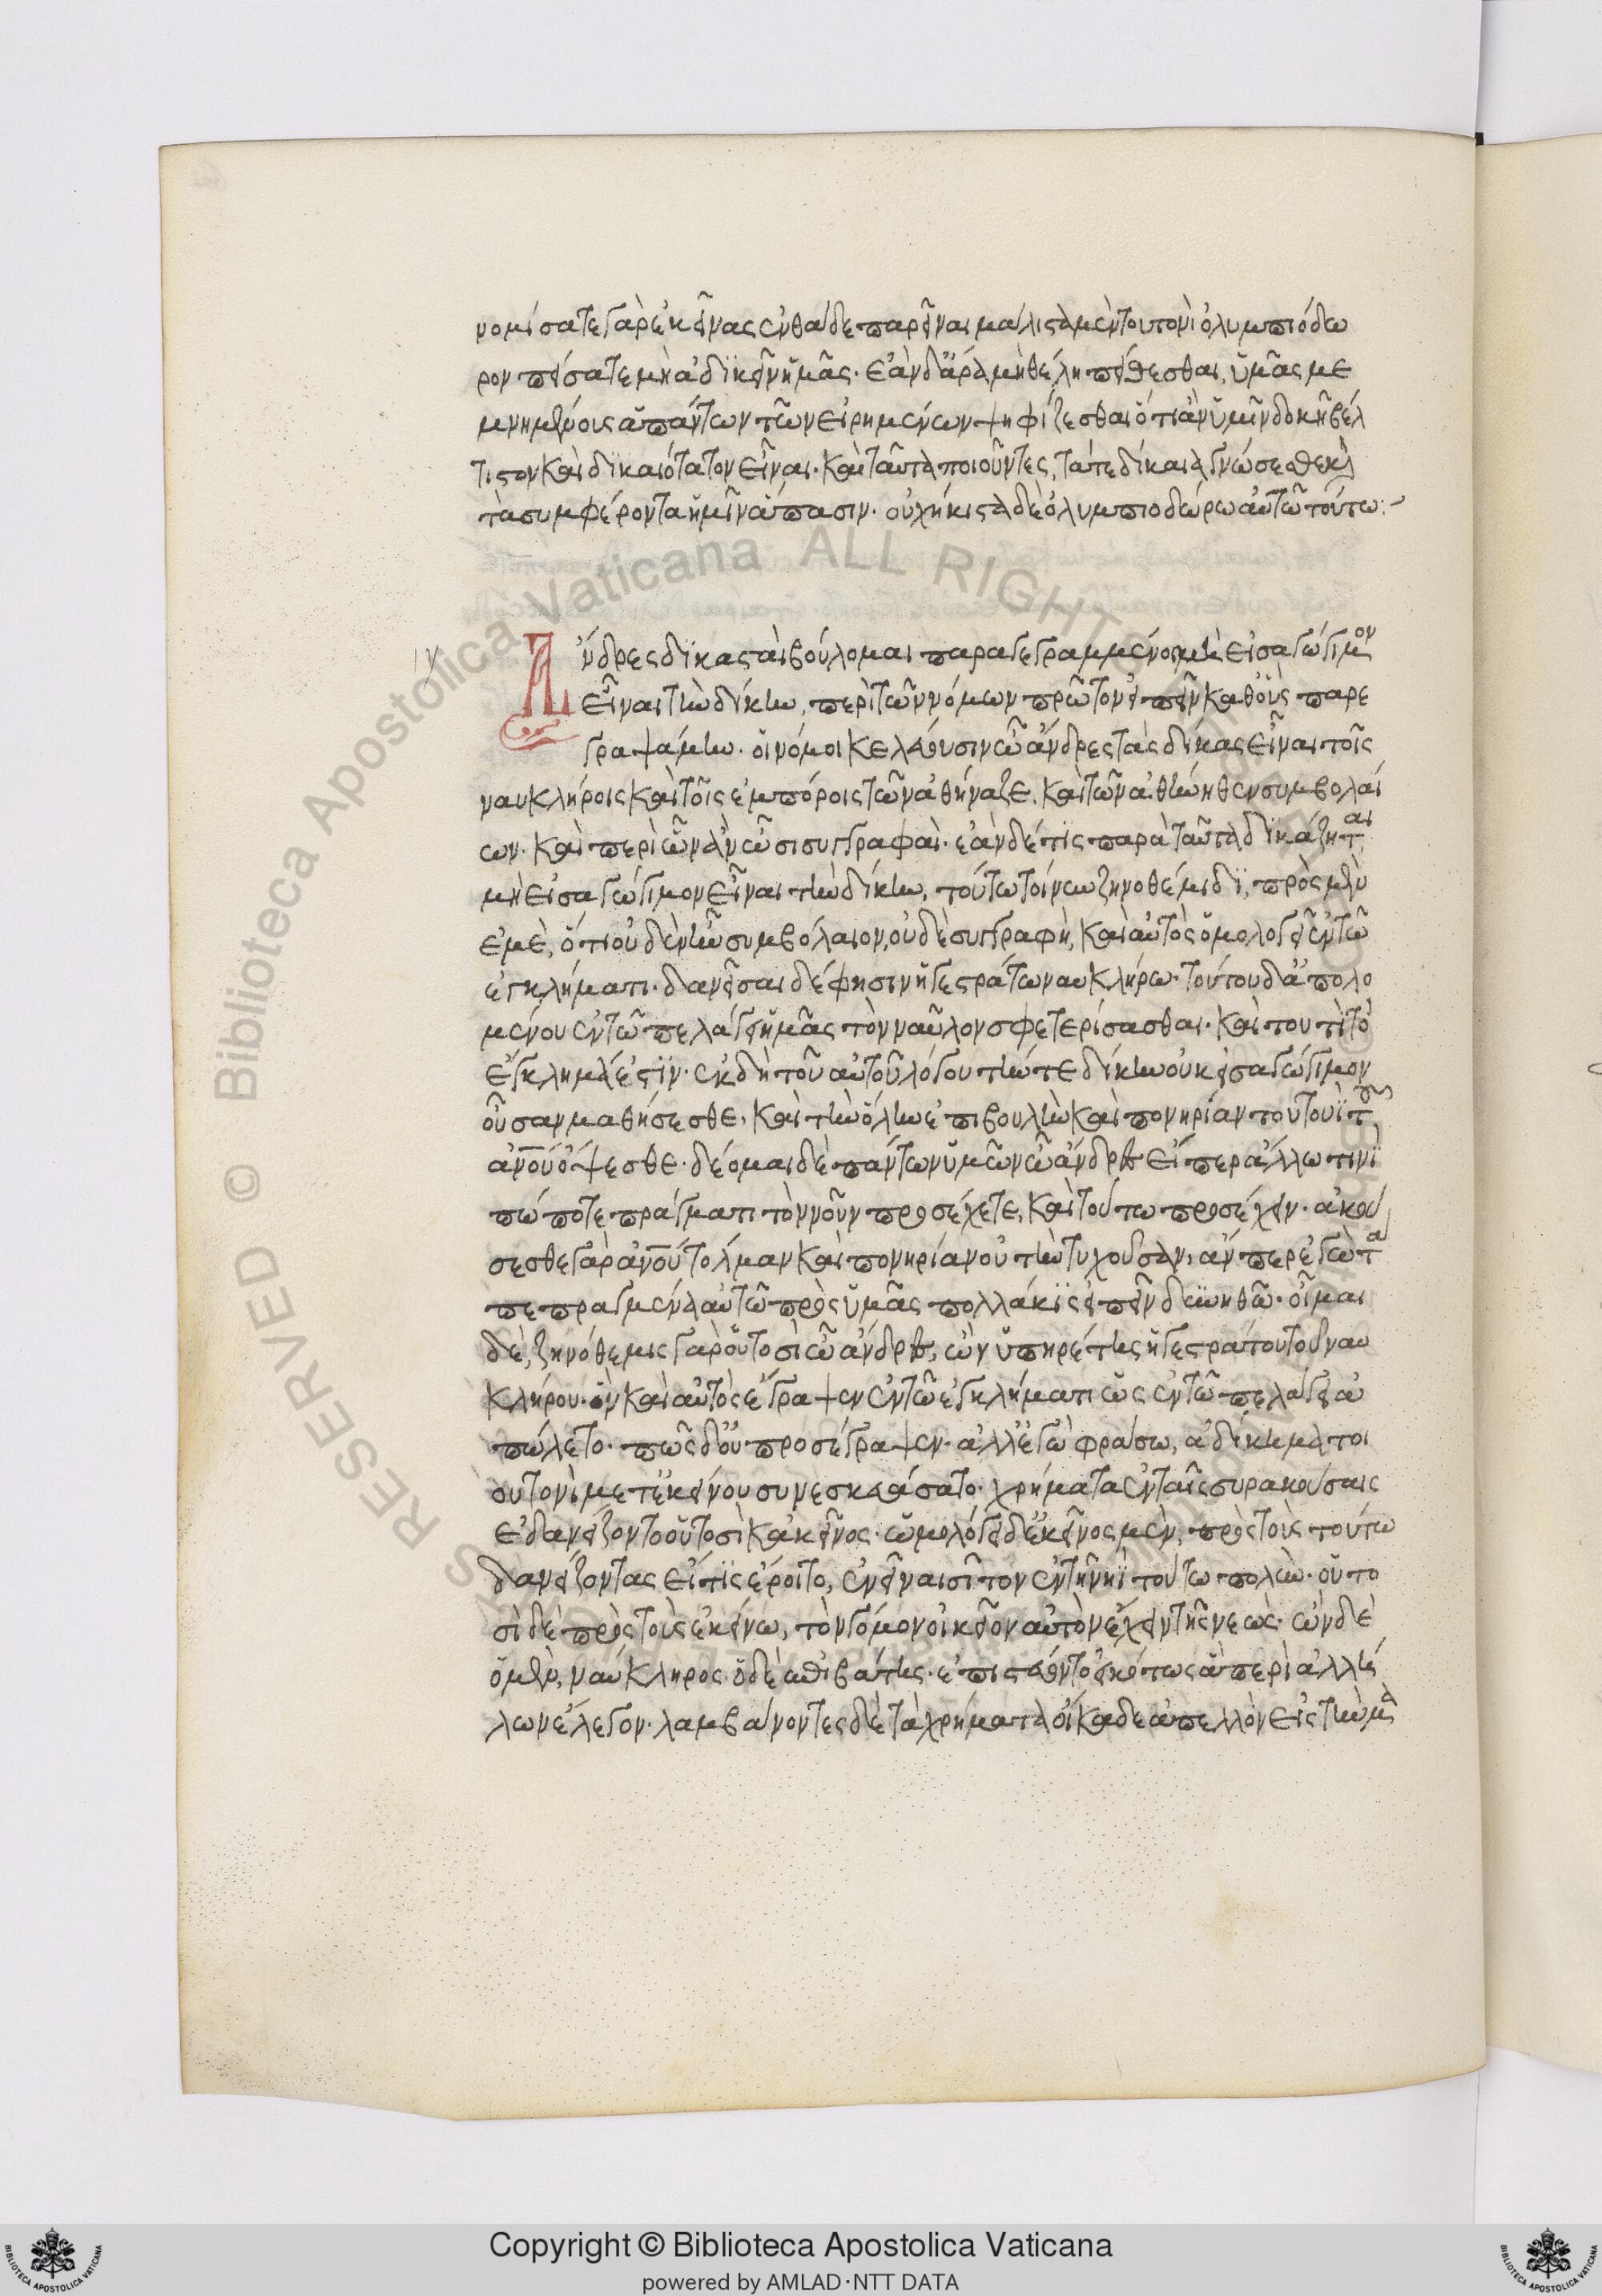 νομίσατε γὰρ ἐκείνας ἐνθάδε παρεῖναι. μάλιστα μὲν τουτονὶ ὀλυμπιόδω
ρον πείσατε μὴ ἀδικεῖν ἡμᾶς. ἐὰν δ' ἄρα μὴ θέλῃ πείθεσθαι, ὑμᾶς με
μνημένους ἁπάντων τῶν εἰρημένων ψηφίζεσθαι ὅτι ἂν ὑμῖν δοκῇ βέλ
τιστον καὶ δικαιότατον εἶναι. καὶ ταῦτα ποιοῦντες, τά τε δίκαια γνώσεσθε κ(αὶ)
τὰ συμφέροντα ἡμῖν ἅπασιν. οὐχ ἥκιστα δὲ ὀλυμπιοδώρω αὐτῶ τούτω:-
Ἄνδρες δικασταὶ βούλομαι παραγεγραμμένος μὴ εἰσαγώγιμον
εἶναι τὴν δίκην, περὶ τῶν νόμων πρῶτον εἰπεῖν καθ' οὓς παρε
γραψάμην. οἱ νόμοι κελεύουσιν ὦ ἄνδρες τὰς δίκας εἶναι τοῖς
ναυκλήροις καὶ τοῖς ἐμπόροις τῶν ἀθήναζε, καὶ τῶν ἀθήνηθεν συμβολαί
ων. καὶ περὶ ὧν ἂν ὦσι συγγραφαί. ἐὰν δέ τις παρὰ ταῦτα δικάζηται
μὴ εἰσαγώγιμον εἶναι τὴν δίκην, τούτω τοίνυν ζηνοθέμιδι, πρὸς μὲν
ἐμὲ, ὅτι οὐδὲν ἦν συμβόλαιον, οὐδὲ συγγραφὴ, καὶ αὐτὸς ὁμολογεῖ ἐν τῶ
ἐγκλήματι. δανεῖσαι δέ φησιν ἡγεστράτω ναυκλήρω. τούτου δ' ἀπολο
μένου ἐν τῶ πελάγει ἡμᾶς τὸν ναῦλον σφετερίσασθαι. καὶ τουτὶ τὸ
ἔγκλημά ἐστιν. ἐκ δὴ τοῦ αὐτοῦ λόγου τήν τε δίκην οὐκ εἰσαγώγιμον
οὖσαν μαθήσεσθε, καὶ τὴν ὅλην ἐπιβουλὴν καὶ πονηρίαν τουτουῒ τοῦ
ἀνο̅υ̅ ὄψεσθε. δέομαι δὲ πάντων ὑμῶν ὦ ἄνδρες εἴπερ ἄλλω τινὶ
πώποτε πράγματι τὸν νοῦν προσέχετε, καὶ τούτω προσέχειν. ἀκού
σεσθε γὰρ ἀνο̅υ̅ τόλμαν καὶ πονηρίαν οὐ τὴν τυχοῦσαν, ἄν περ ἐγὼ τὰ
πεπραγμένα αὐτῶ πρὸς ὑμᾶς πολλάκις εἰπεῖν δυνηθῶ. οἶμαι
δὲ, ζηνόθεμις γὰρ οὑτοσὶ ὦ ἄνδρες, ὢν ὑπηρέτης ἡγεστράτου τοῦ ναυ
κλήρου. ὃν καὶ αὐτὸς ἔγραψεν ἐν τῶ ἐγκλήματι ὡς ἐν τῶ πελάγει ἀ
πώλετο. πῶς δ' οὐ προσέγραψεν. ἀλλ' ἐγὼ φράσω, ἀδίκημα τοι
ουτονὶ μετ' ἐκείνου συνεσκευάσατο. χρήματα ἐν ταῖς συρακούσαις
ἐδανείζονθ' οὗτοσὶ κἀκεῖνος. ὡμολόγει δ' ἐκεῖνος μὲν, πρὸς τοὺς τούτω
δανείζοντας εἴ τις ἔροιτο, ἐνεῖναι σῖτον ἐν τῇ νηῒ τούτω πολὺν. οὑτο
σὶ δὲ πρὸς τοὺς ἐκείνω, τὸν γόμον οἰκεῖον αὐτὸν ἔχειν τῆς νεώς. ὢν δὲ
ὁ μὲν, ναύκληρος. ὁ δὲ ἐπιβάτης. ἐπιστεύοντο εἰκότως ἃ περὶ ἀλλή
λων ἔλεγον. λαμβάνοντες δὲ τὰ χρήματα οἴκαδε ἀπέλλον εἰς τὴν μα